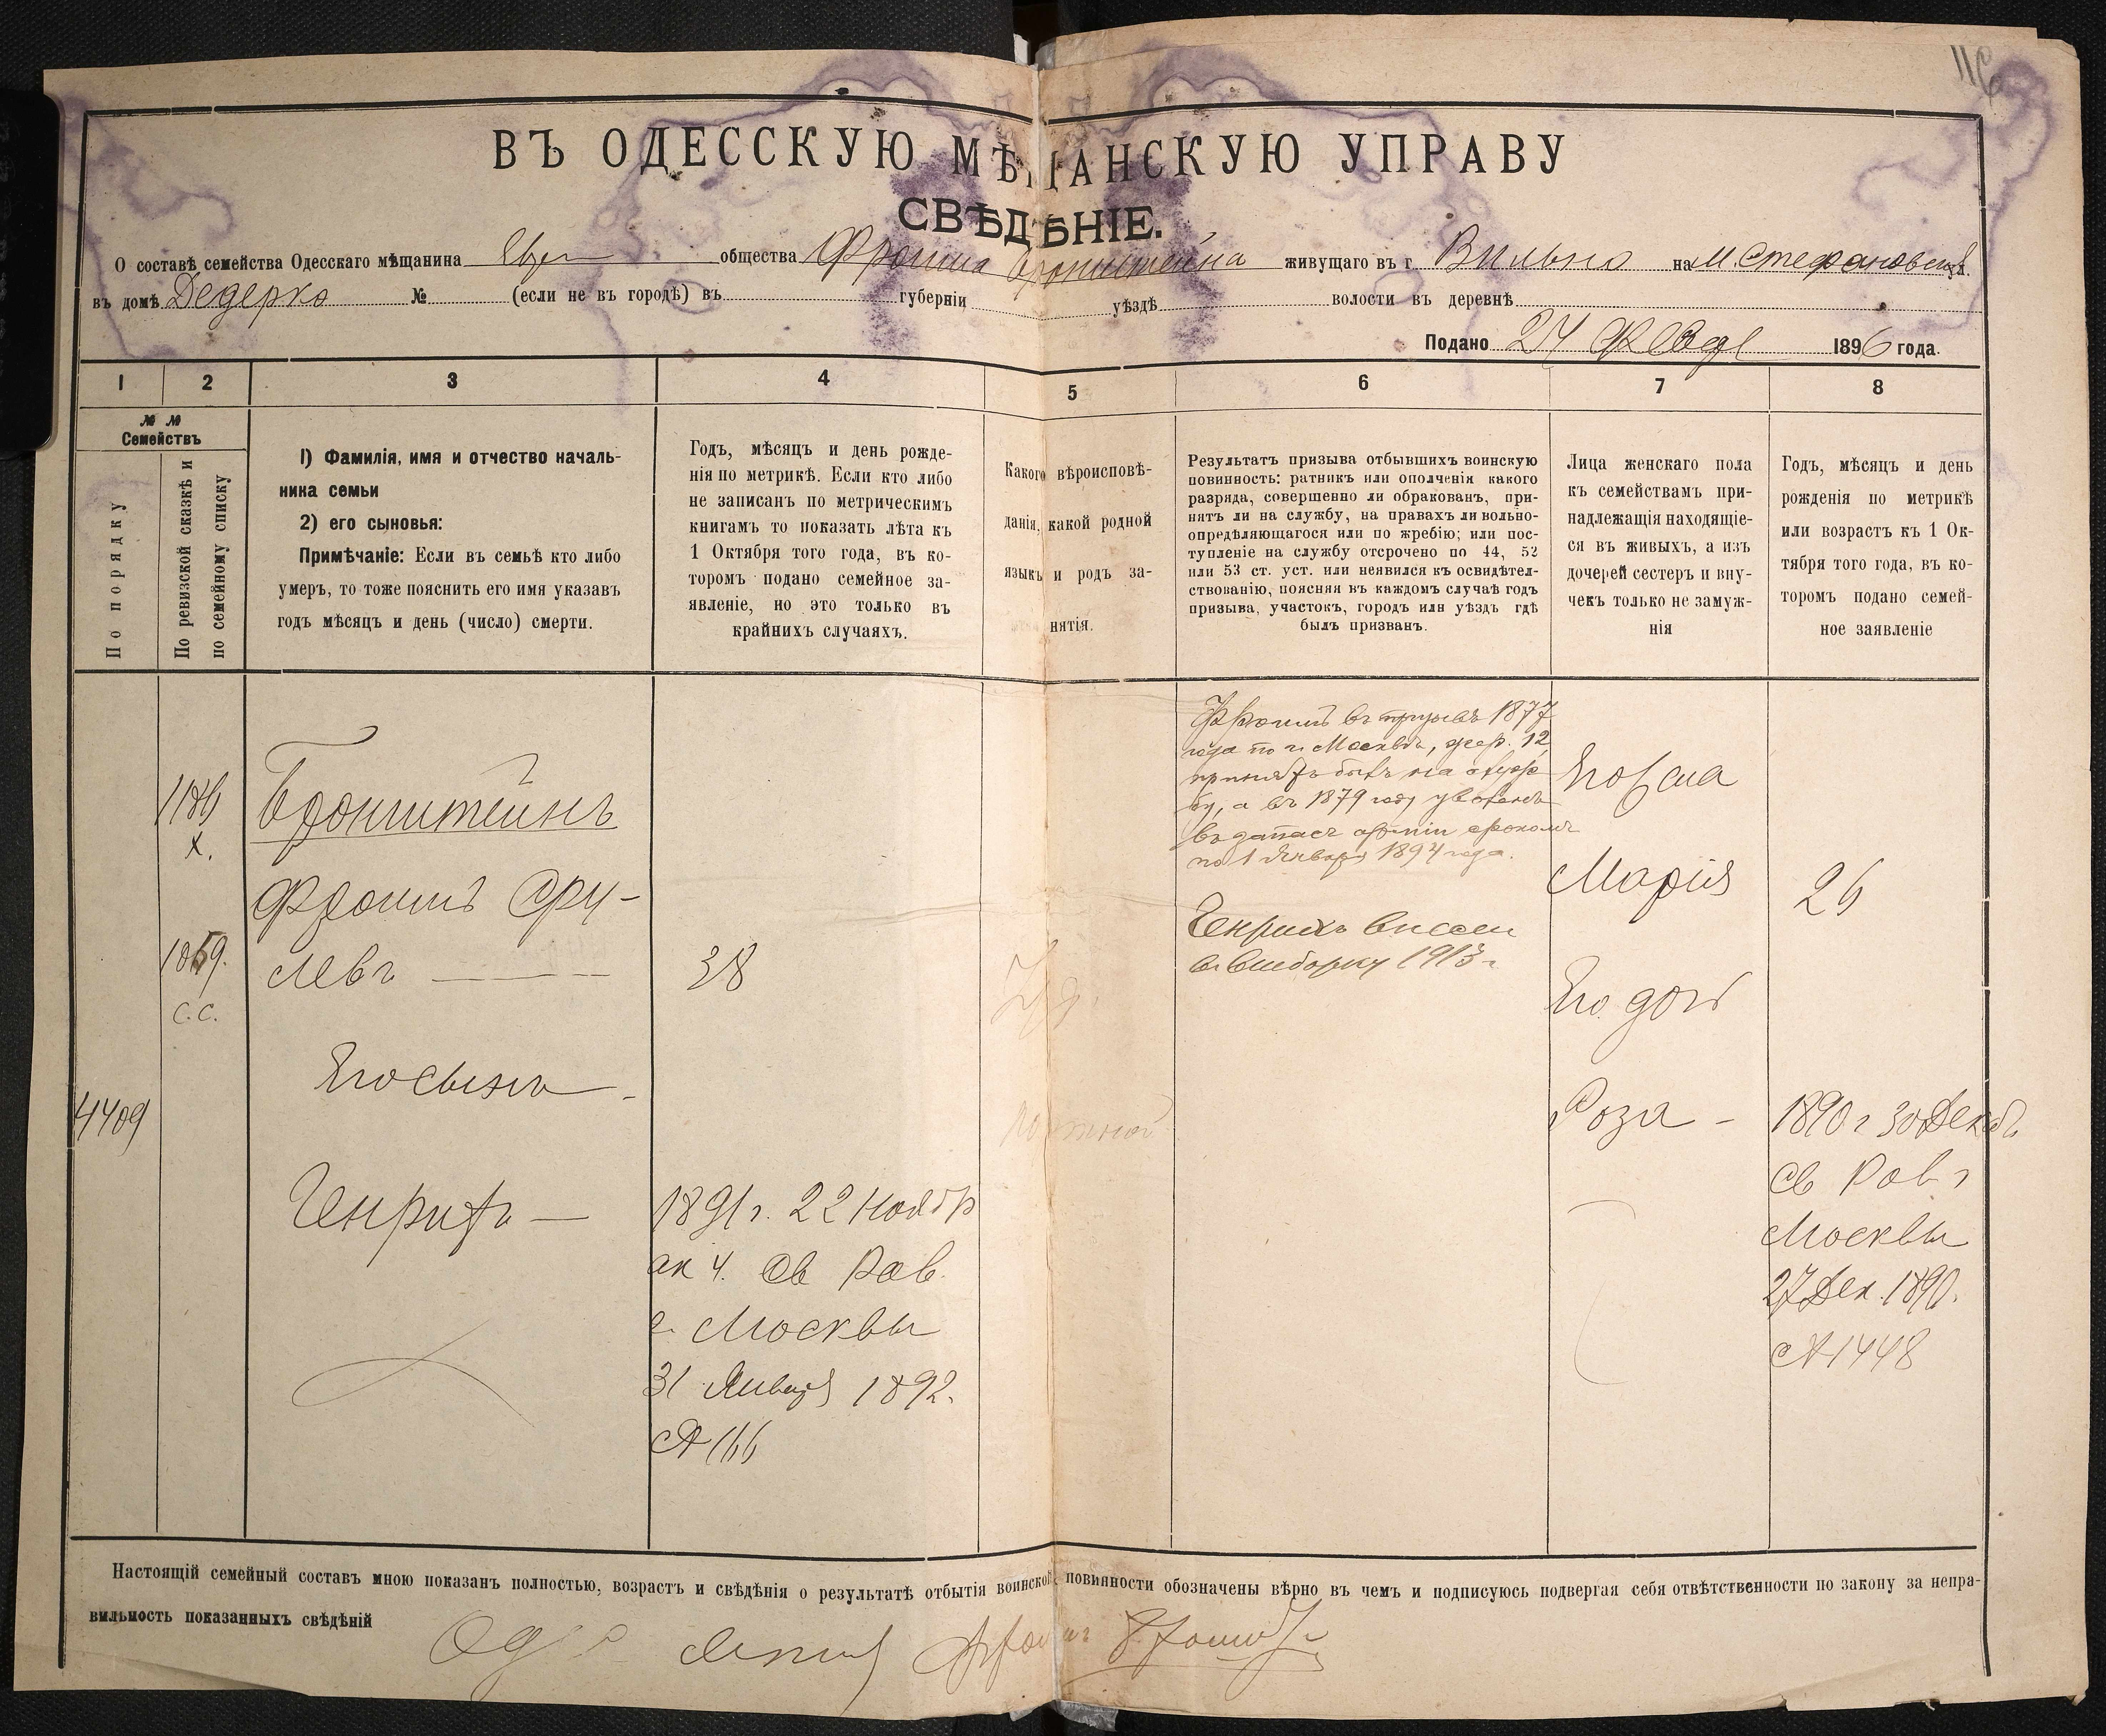 116
ВЪ ОДЕССКУЮ МѢЩАНСКУЮ УПРАВУ
СВѢДѢНІЕ.
О составѣ семейства Одесскаго мѣщанина Евр общества Фроима Бронштейна живущаго въ г. Вильно на М. Стефановской ул.
въ домѣ Дедерко № (если не въ городѣ) въ губерніи уѣздѣ волости въ деревнѣ
Подано 27 1896 года.
1 2 3 4 5 6 7 8
№ № Семействъ
По порядку
По ревизской сказкѣ и по семейному списку
1) Фамилія, имя и отчество началь-
ника семьи
2) его сыновья:
Примѣчаніе: Если въ семьѣ кто либо
умеръ, то тоже пояснить его имя указавъ
годъ мѣсяцъ и день (число) смерти.
Годъ, мѣсяцъ и день рожде-
нія по метрикѣ. Если кто либо
не записанъ по метрическимъ
книгамъ то показать лѣта къ
1 Октября того года, въ ко-
торомъ подано семейное за-
явленіе, но это только въ
крайнихъ случаяхъ.
Какого вѣроисповѣ-
данія, какой родной
языкъ и родъ за-
нятія.
Результатъ призыва отбывшихъ воинскую
повинность: ратникъ или ополченія какого
разряда, совершенно ли обракованъ, при-
нятъ ли на службу, на правахъ ли вольно-
опредѣляющагося или по жребію; или пос-
тупленіе на службу отсрочено по 44, 52
или 53 ст. уст. или неявился къ освидѣтел-
ствованію, поясняя въ каждомъ случаѣ годъ
призыва, участокъ, городъ или уѣздъ гдѣ
былъ призванъ.
Лица женскаго пола
къ семействамъ при-
надлежащія находящіе-
ся въ живыхъ, а изъ
дочерей сестеръ и вну-
чекъ только не замуж-
нія
Годъ, мѣсяцъ и день
рожденія по метрикѣ
или возрастъ къ 1 Ок-
тября того года, въ ко-
торомъ подано семей-
ное заявленіе
1186
х.
Бронштейнъ
Фроимъ Сру-
1869.
с.с.
левъ
38
Его сынъ
4409
Генрихъ —
1891 г. 22 Ноябр
ак ч. Св Рав.
г. Москвы
31 Января 1892.
№ 166
Іуд.
портной
Фроимъ въ призывѣ 1877
года по г. Москвѣ, жер. 12,
принятъ былъ на служ
бу, а въ 1879 году уволенъ
въ запасъ арміи срокомъ
по 1 Января 1894 года.
Генрихъ внесен
въ выборку 1913 г.
Его жена
Марія
26
Его дочь
Роза —
1890 г 30 Декаб.
Св Рав. г
Москвы
27 Дек. 1890.
№ 1448
Настоящій семейный составъ мною показанъ полностью, возрастъ и свѣдѣнія о результатѣ отбытія воинской повинности обозначены вѣрно въ чемъ и подписуюсь подвергая себя отвѣтственности по закону за непра-
вильность показанныхъ свѣдѣній
Фроимъ